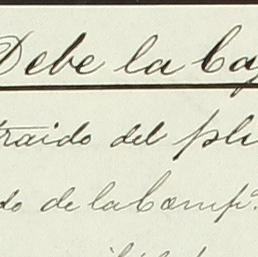 Debe la Ca
traido del pli
do de la Comp.ª